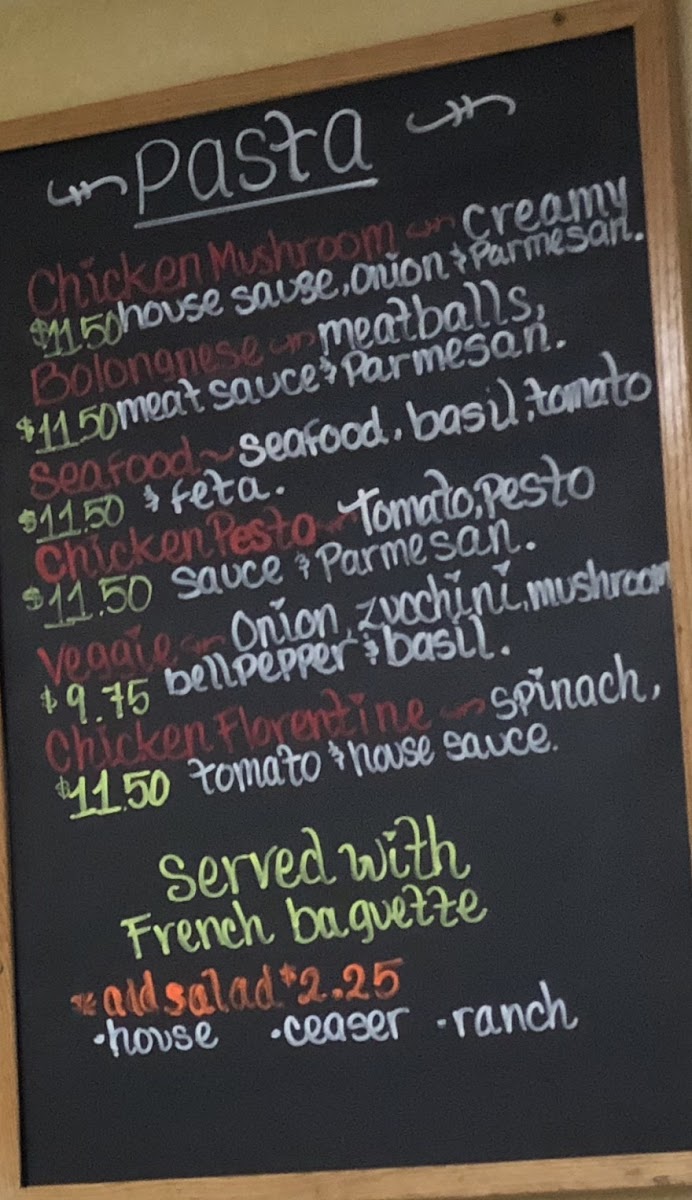 Pasta
Chicken Mushroom ~ Creamy
$11.50 house sause, onion & Parmesan.
Bolongnese ~ meatballs,
$11.50 meat sauce & Parmesan.
Seafood ~ Seafood, basil, tomato
$11.50 & feta.
Chicken Pesto ~ Tomato, Pesto
$11.50 sauce & Parmesan.
Veggie ~ Onion, zucchini, mushroom
$9.75 bell pepper & basil.
Chicken Florentine ~ Spinach,
$11.50 tomato & house sauce.
Served with
French baguette
*add salad $2.25
•house •ceaser •ranch